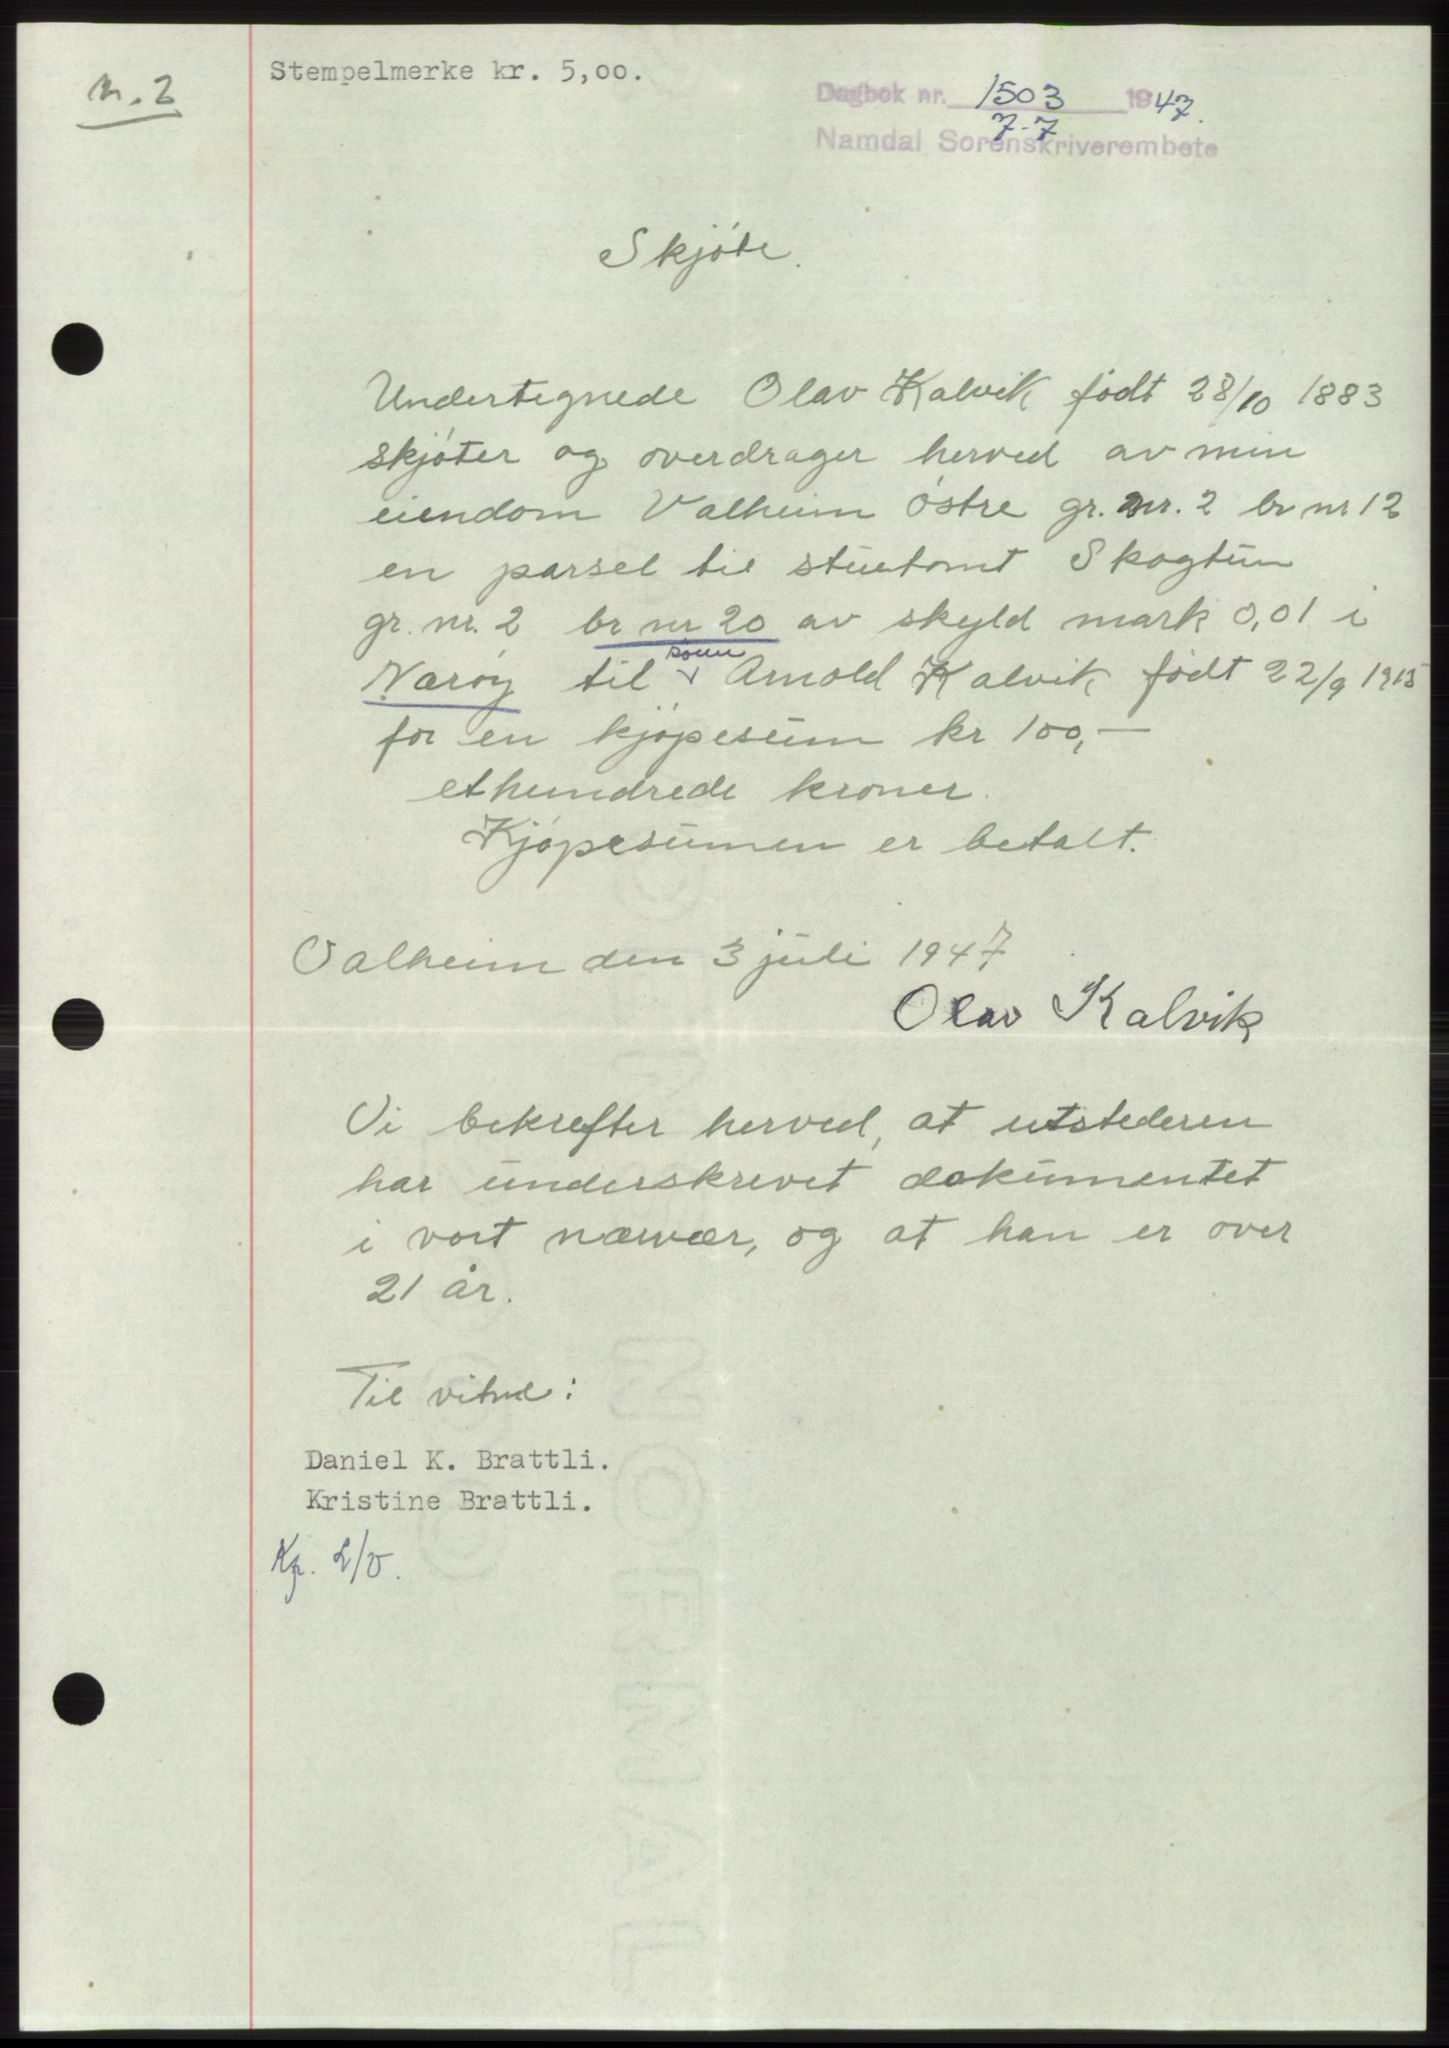 n. 2
Stempelmerke kr. 5,00.
Dagbok nr. 1503 1947.
7-7
Namdal Sorenskriverembete
Skjöte.
Undertegnede Olav Kalvik födt 28/10 1883
skjöter og overdrager herved av min
eiendom Valheim Östre gr. nr. 2 br nr 12
en parsel til stuetomt Skogtun
gr. nr. 2 br nr 20 av skyld mark 0,01 i
sönn
Nærøy til Arnold Kalvik födt 22/9 1915
for en kjöpesum kr 100,—
ethundrede kroner.
Kjöpesumen er betalt.
Valheim den 3 juli 1947
Olav Kalvik
Vi bekrefter herved, at utstederen
har underskrevet dokumentet
i vort nærvær, og at han er over
21 år.
Til vitne:
Daniel K. Brattli.
Kristine Brattli.
NORMAL